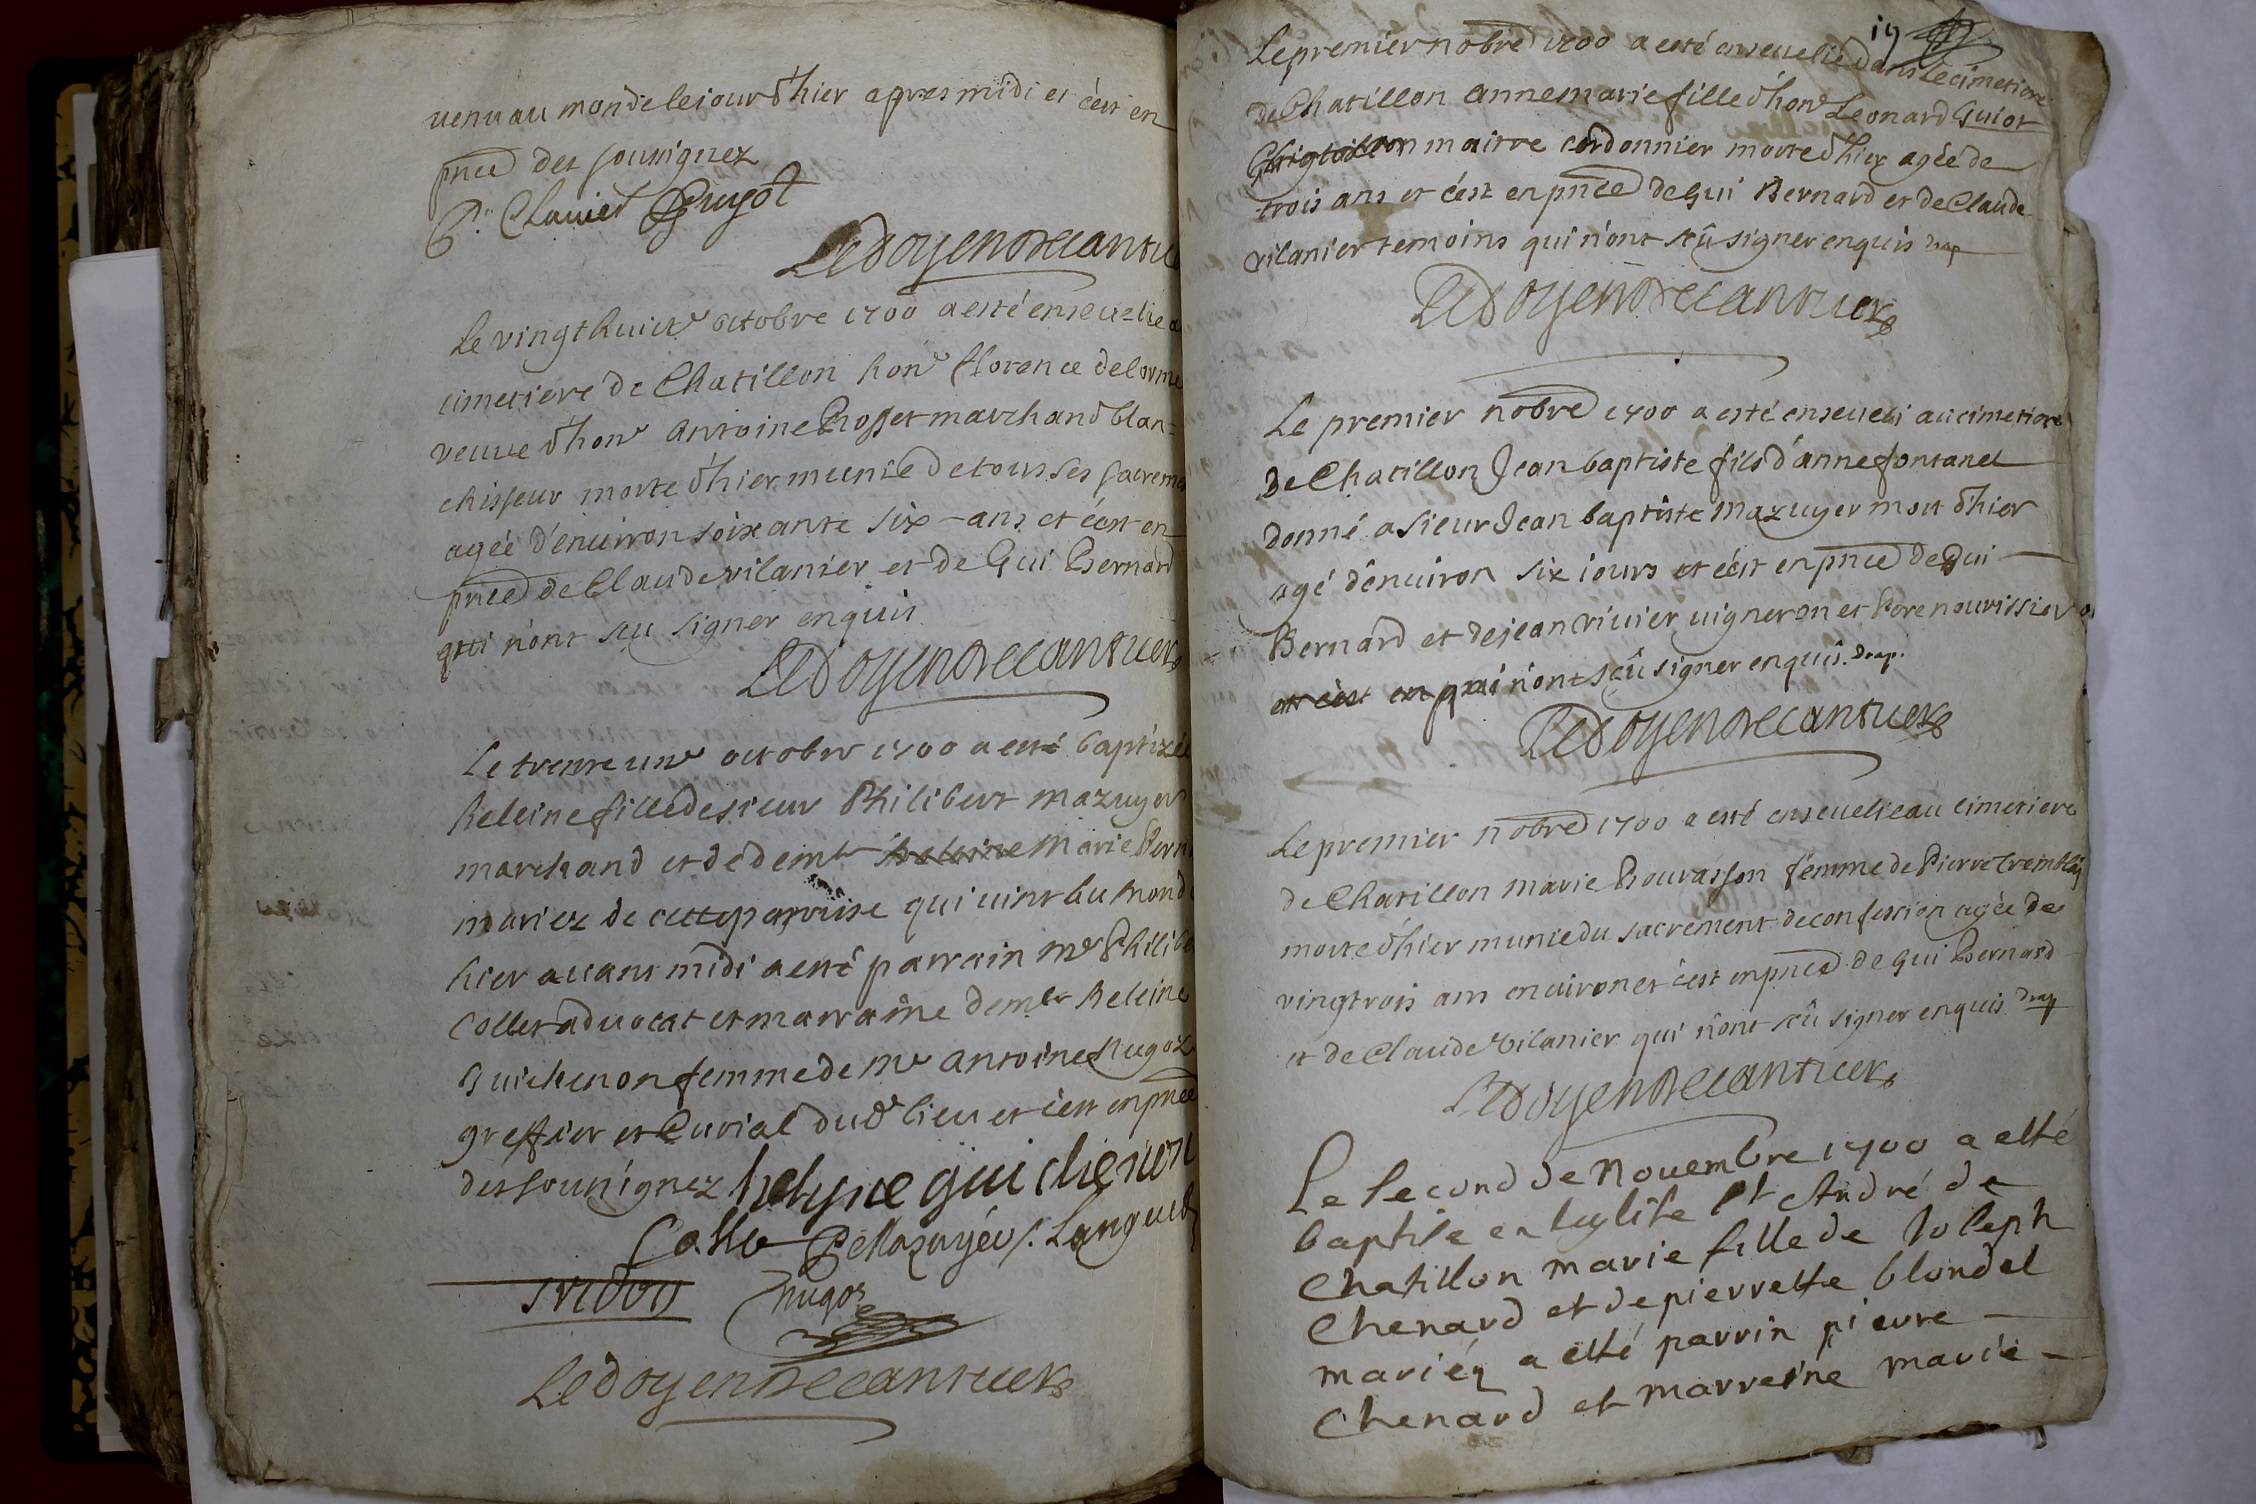 venu au monde le iour d'hier apres midi et c'est en
pnce des soussignez
Le doyen decantuer
Le vingt huict.e octobre 1700 a esté enseuelie a
cimetiere de Chatillon hon.e florence delorme
veuve d'hon.e Antoine Rosset marchand blan=
chisseur morte d'hier munie de tous ses sacreme
agée d'enuiron soixante six - ans et c'est en
pnce de Claude vilanier et de Gui Bernard
qui n'ont scu signer enquis
Le doyen decantuer
Le trente une octobre 1700 a esté baptizée
heleine fille de sieur Philibert mazuyer
marchand et de dem.le heleine Marie Bern
mariez de cette paroisse qui vint au mond
hier auant midi a esté parrain m.e Philibe
Collet aduocat et marraine dem.le heleine
Guichenon femme de M.e Antoine hugoz
greffier et Curial dud. lieu et c'est en pnce
des soussignez helyne guichenon
Collet P. Mazuyer
hugoz
Le doyen decantuer
19
Le premier nobre 1700 a esté enseuelie dans le cimetiere
de Chatillon Annemarie fille d'hon.e Leonard Guiot
maitre cordonnier morte d'hier agée de
trois ans et c'est en pnce de Gui Bernard et de Claude
vilanier temoins qui n'ont scû signer enquis drap
Le doyen decantuer
Le premier nobre 1700 a esté enseueli au cimetiere
de Chatillon Jean baptiste fils d'anne fontanel
donné a sieur Jean baptiste Mazuyer mort d'hier
agé d'enuiron six iours et c'est en pnce de Gui
Bernard et de jean riuier uigneron et Pere nourissier
et c'est en qui n'ont scû signer enquis. drap.
Le doyen decantuer
Le premier nobre 1700 a esté enseuelie au cimetiere
de Chatillon Marie Bouvasson femme de Pierre Tremblay
morte d'hier munie du sacrement de confession agée de
vingtrois ans enuiron et c'est en pnce de Gui Bernard
et de Claude Vilanier qui n'ont scû signer enquis drap
Le doyen decantuer
Le second de Novembre 1700 a esté
baptise en leglise St André de
Chatillon marie fille de Joseph
Chenard et de pierrette blondel
mariéz a esté parrin pierre
Chenard et marreine marie